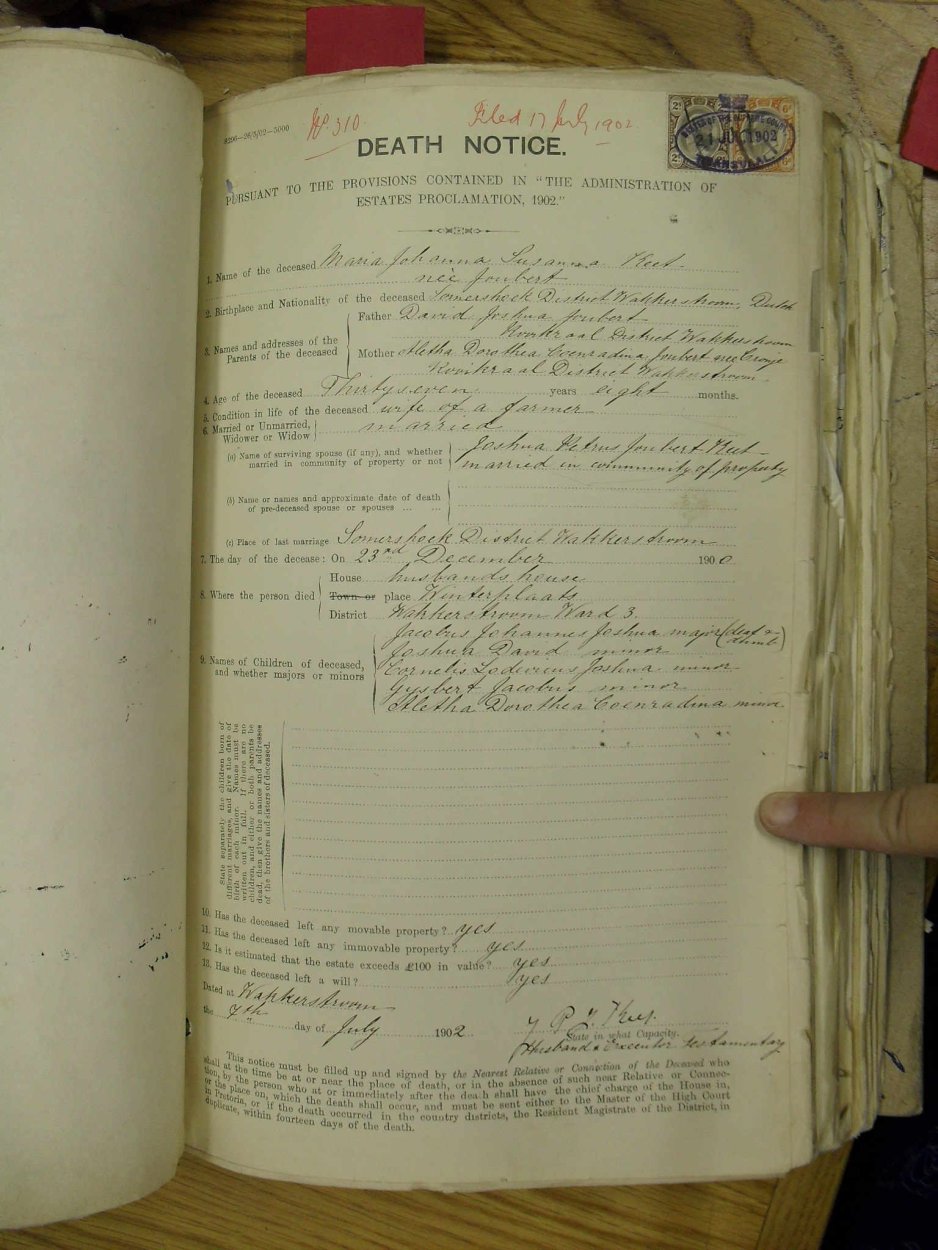 8296—26/5/02—5000
No 310.
Filed 17 July 1902
2d 6d
MASTER OF THE SUPREME COURT
21 JUL 1902
TRANSVAAL
DEATH NOTICE.
PURSUANT TO THE PROVISIONS CONTAINED IN "THE ADMINISTRATION OF
ESTATES PROCLAMATION, 1902."
1. Name of the deceased Maria Johanna Susanna
neé Joubert
2. Birthplace and Nationality of the deceased Somershoek District Wakkerstroom, Dutch
3. Names and addresses of the Parents of the deceased
Father David Joshua Joubert
Rooikraal District Wakkerstroom
Mother Aletha Dorothea Coenradina Joubert neé Cronje
Rooikraal District Wakkerstroom
4. Age of the deceased Thirty seven years eight months.
5. Condition in life of the deceased wife of a farmer
6. Married or Unmarried, Widower or Widow married
(a) Name of surviving spouse (if any), and whether
married in community of property or not
Joshua Petrus Joubert
married in community of property
(b) Name or names and approximate date of death
of pre-deceased spouse or spouses ... ...
(c) Place of last marriage Somershoek District Wakkerstroom
7. The day of the decease: On 23rd December 1900
8. Where the person died
House husbands house
Town or place Winterplaats
District Wakkerstroom Ward 3.
9. Names of Children of deceased,
and whether majors or minors
Jacobus Johannes Joshua major (deaf & dumb)
Joshua David minor
Cornelis Lodevicus Joshua minor
Gysbert Jacobus minor
Aletha Dorothea Coenradina minor
State separately the children born of
different marriages, and give the date of
birth of each minor. Names must be
written out in full. If there are no
children, and either or both parents be
dead, then give the names and addresses
of the brothers and sisters of deceased.
10. Has the deceased left any movable property? yes
11. Has the deceased left any immovable property? yes
12. Is it estimated that the estate exceeds £100 in value? yes
13. Has the deceased left a will? yes
Dated at Wakkerstroom
the 7th day of July 1902
J. P. J.
State in what Capacity.
Husband & Executor Testamentary
This notice must be filled up and signed by the Nearest Relative or Connection of the Deceased who
shall at the time be at or near the place of death, or in the absence of such near Relative or Connec-
tion, by the person who at or immediately after the death shall have the chief charge of the House in,
or the place on, which the death shall occur, and must be sent either to the Master of the High Court
in Pretoria, or if the death occurred in the country districts, the Resident Magistrate of the District, in
duplicate, within fourteen days of the death.